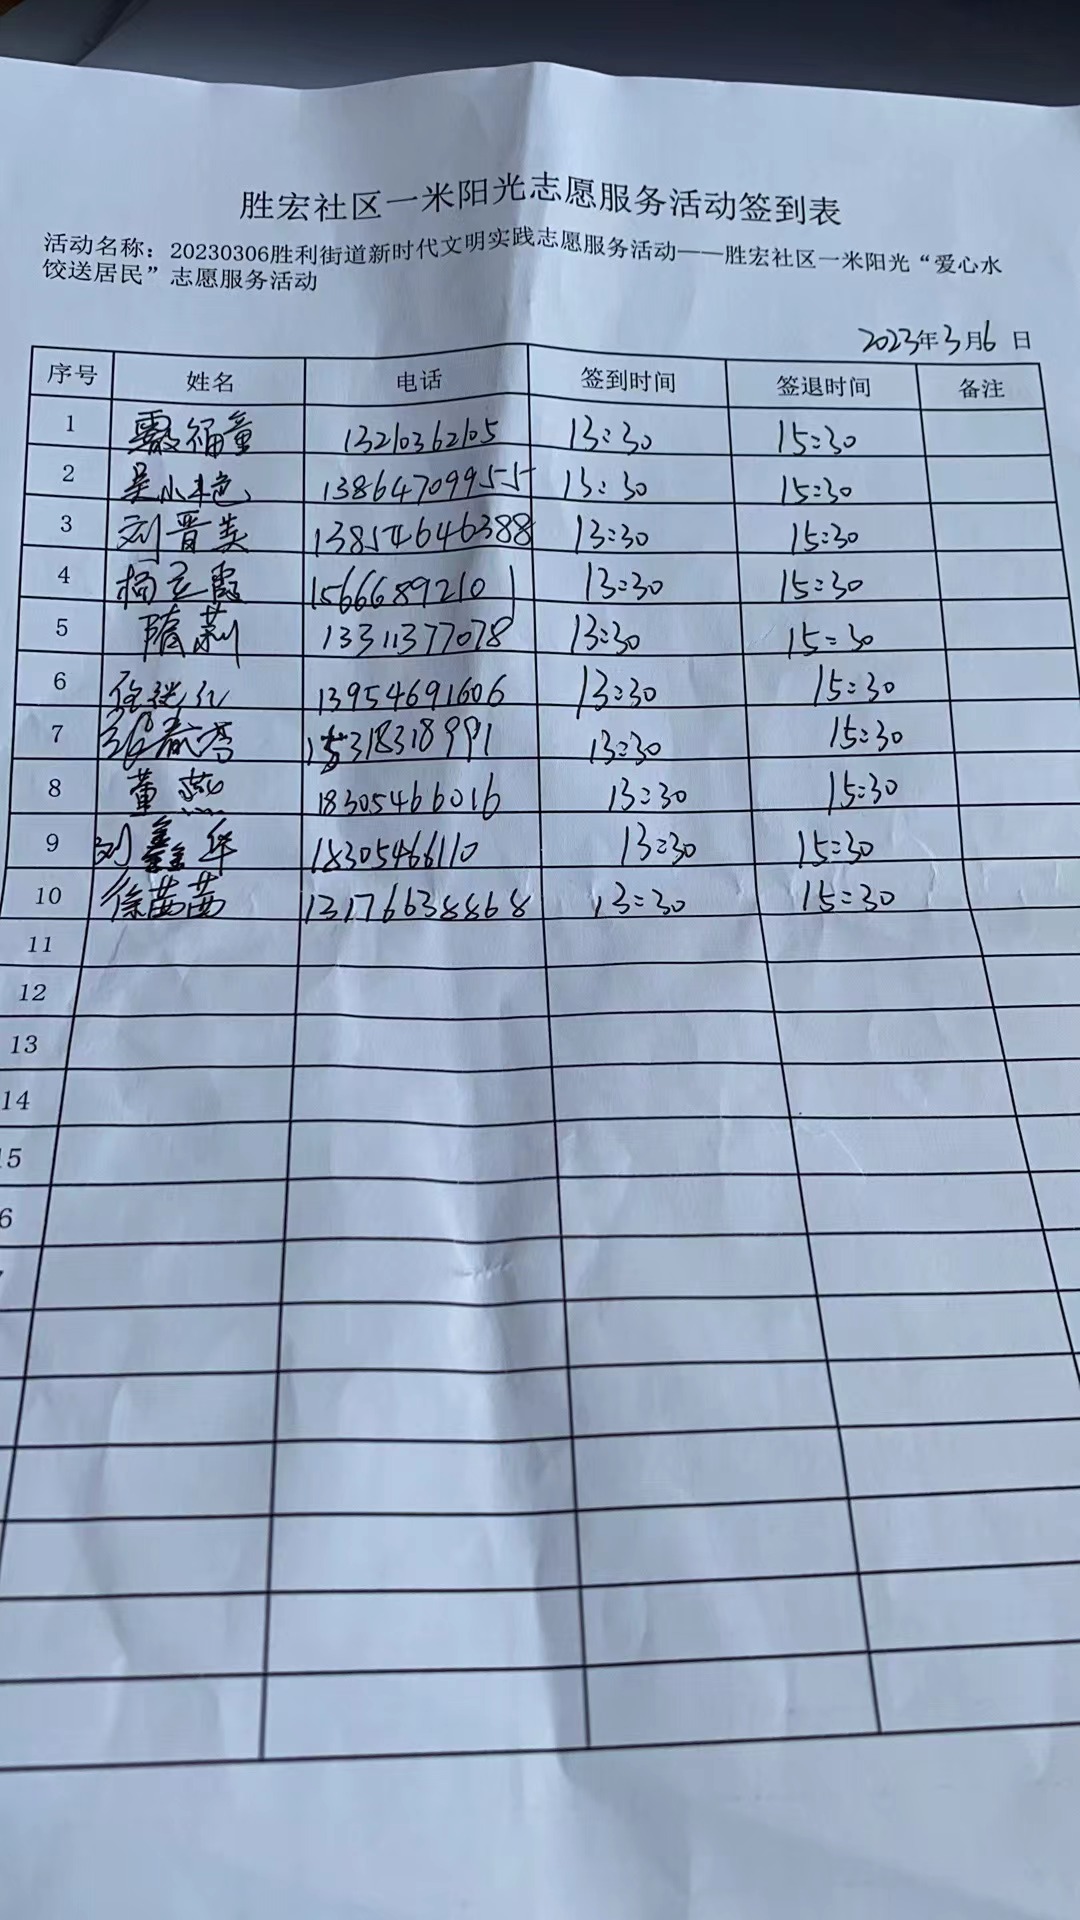 胜宏社区一米阳光志愿服务活动签到表
活动名称：20230306胜利街道新时代文明实践志愿服务活动——胜宏社区一米阳光“爱心水
饺送居民”志愿服务活动
2023年3月6日
序号 姓名 电话 签到时间 签退时间 备注
1 福童 13210362105 13:30 15:30
2 吴小艳 13864709955 13:30 15:30
3 刘晋美 13:30 15:30
4 杨立霞 15666892101 13:30 15:30
5 隋莉 13311377078 13:30 15:30
6 徐 13954691606 13:30 15:30
7 13:30 15:30
8 董燕 18305466016 13:30 15:30
9 刘鑫华 18305466110 13:30 15:30
10 徐茜茜 13176638868 13:30 15:30
11
12
13
14
15
6